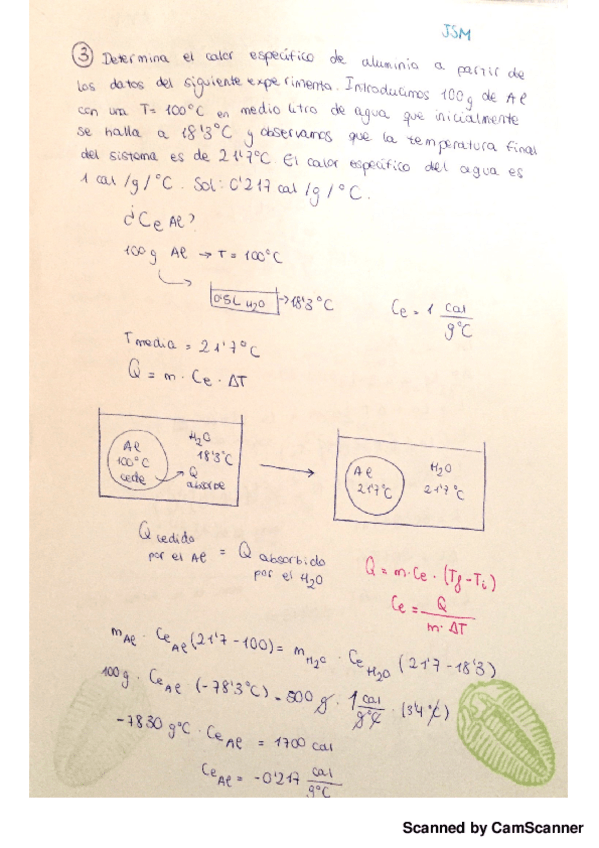 JSM
③ Determina el calor específico de aluminio a partir de
los datos del siguiente experimento. Introducimos 100 g de Al
con una T = 100°C en medio litro de agua que inicialmente
se halla a 18'3°C y observamos que la temperatura final
del sistema es de 21'7°C. El calor específico del agua es
1 cal /g/°C. Sol: 0'217 cal /g/°C.
¿Ce Al?
100 g Al → T = 100°C
0'5L H₂O → 18'3°C
Ce = 1 cal/g°C
T media = 21'7°C
Q = m · Ce · ΔT
Al
100°C
cede
H₂O
18'3°C
Q
absorbe
Al
21'7°C
H₂O
21'7°C
Q cedido por el Al = Q absorbido por el H₂O
Q = m·Ce·(Tf - Ti)
Ce = Q / m·ΔT
mAl · CeAl (21'7 - 100) = mH₂O · CeH₂O (21'7 - 18'3)
100 g · CeAl (-78'3°C) = 500 g · 1 cal/g°C · (3'4°C)
-7830 g°C · CeAl = 1700 cal
CeAl = -0'217 cal/g°C
Scanned by CamScanner